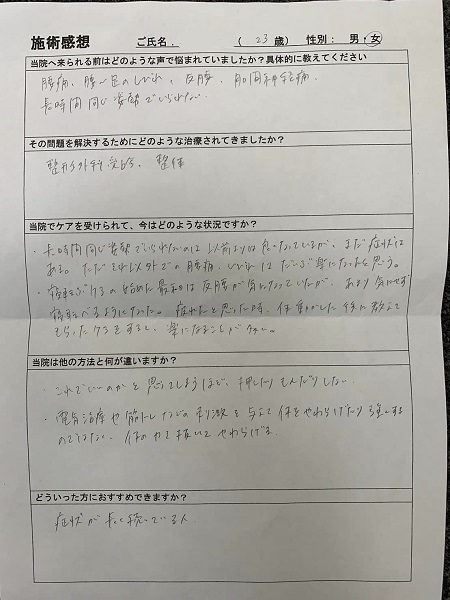 施術感想 ご氏名. ( 23 歳) 性別: 男・女
当院へ来られる前はどのような声で悩まれていましたか?具体的に教えてください
腰痛、腰〜足のしびれ、反腰、肋間神経痛、
長時間同じ姿勢でいられない。
その問題を解決するためにどのような治療されてきましたか?
整形外科受診、整体
当院でケアを受けられて、今はどのような状況ですか?
・長時間同じ姿勢でいられないのは以前よりは良くなっているが、まだ症状は
ある。ただそれ以外での腰痛、しびれはだいぶ楽になったと思う。
・寝転ぶ のも始めた最初は反腰が気になっていたが、あまり気にせず
寝転べるようになった。疲れたと思った時、仕事 した後に教えて
もらったケアをすると、楽になることが多い。
当院は他の方法と何が違いますか?
・これでいいのかと思ってしまうほど、押したりもんだりしない。
・電気治療や筋トレなどの刺激を与えて体をやわらげたり強くするの
ではない、体の力を抜いてやわらげる
どういった方におすすめできますか?
症状が長く続いている人